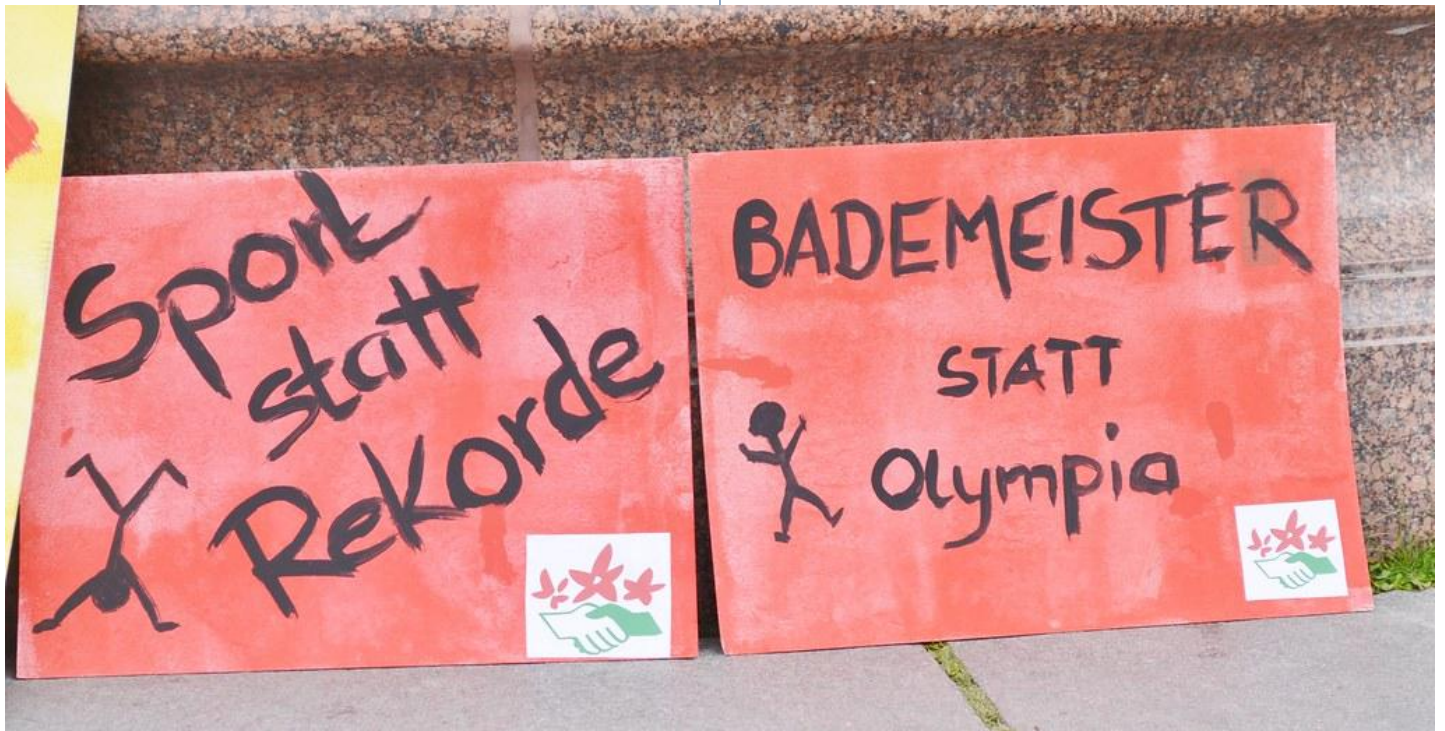 Sport
statt
Rekorde
BADEMEISTER
STATT
Olympia